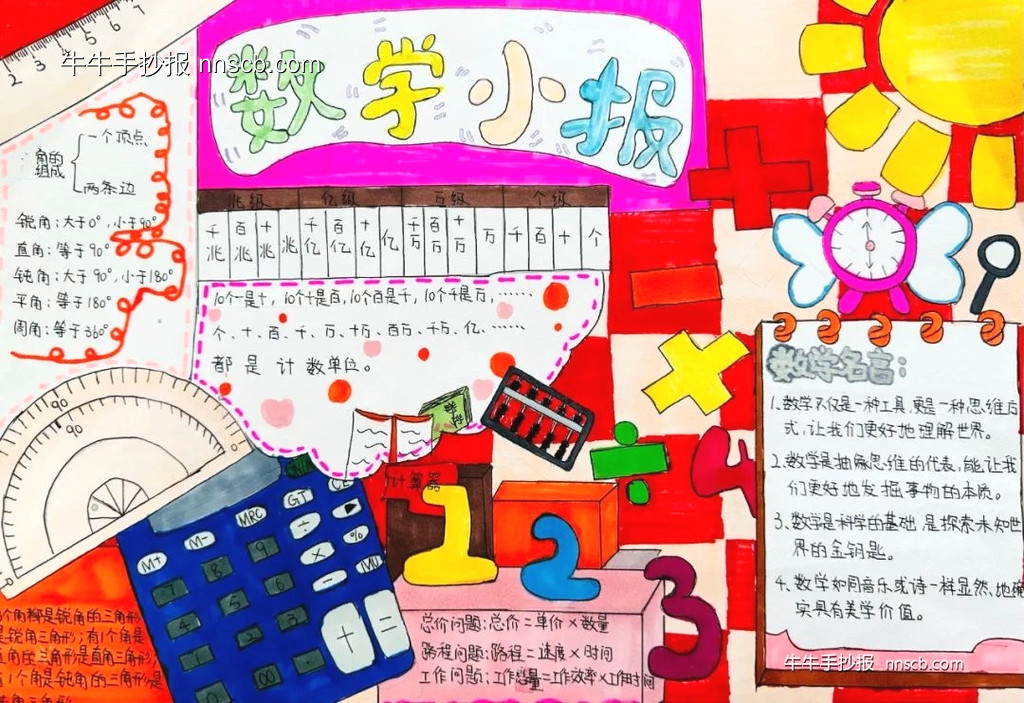 牛牛手抄报 nnscb.com
数学小报
2 3 4 5 6
角的组成
一个顶点
两条边
锐角:大于0°,小于90°
直角:等于90°
钝角:大于90°,小于180°
平角:等于180°
周角:等于360°
兆级 亿级 万级 个级
千兆 百兆 十兆 兆 千亿 百亿 十亿 亿 千万 百万 十万 万 千 百 十 个
10个一是十,10个十是百,10个百是千,10个千是万,……
个、十、百、千、万、十万、百万、千万、亿、……
都是计数单位。
数学
90
90
0
计算器
ON/C
GT CE
MRC ÷ ▶
M+ M- × %
MU
7 8 9 -
4 5 6
1 2 3 + =
0 00 .
1 2 3 4
总价问题:总价=单价×数量
路程问题:路程=速度×时间
工作问题:工作总量=工作效率×工作时间
3个角都是锐角的三角形
是锐角三角形;有1个角是
直角的三角形是直角三角形;
有1个角是钝角的三角形是
钝角三角形
数学名言:
1.数学不仅是一种工具,更是一种思维方
式,让我们更好地理解世界。
2.数学是抽像思维的代表,能让我
们更好地发掘事物的本质。
3.数学是科学的基础 是探索未知世
界的金钥匙。
4.数学如同音乐或诗一样显然地确
实具有美学价值。
牛牛手抄报 nnscb.com